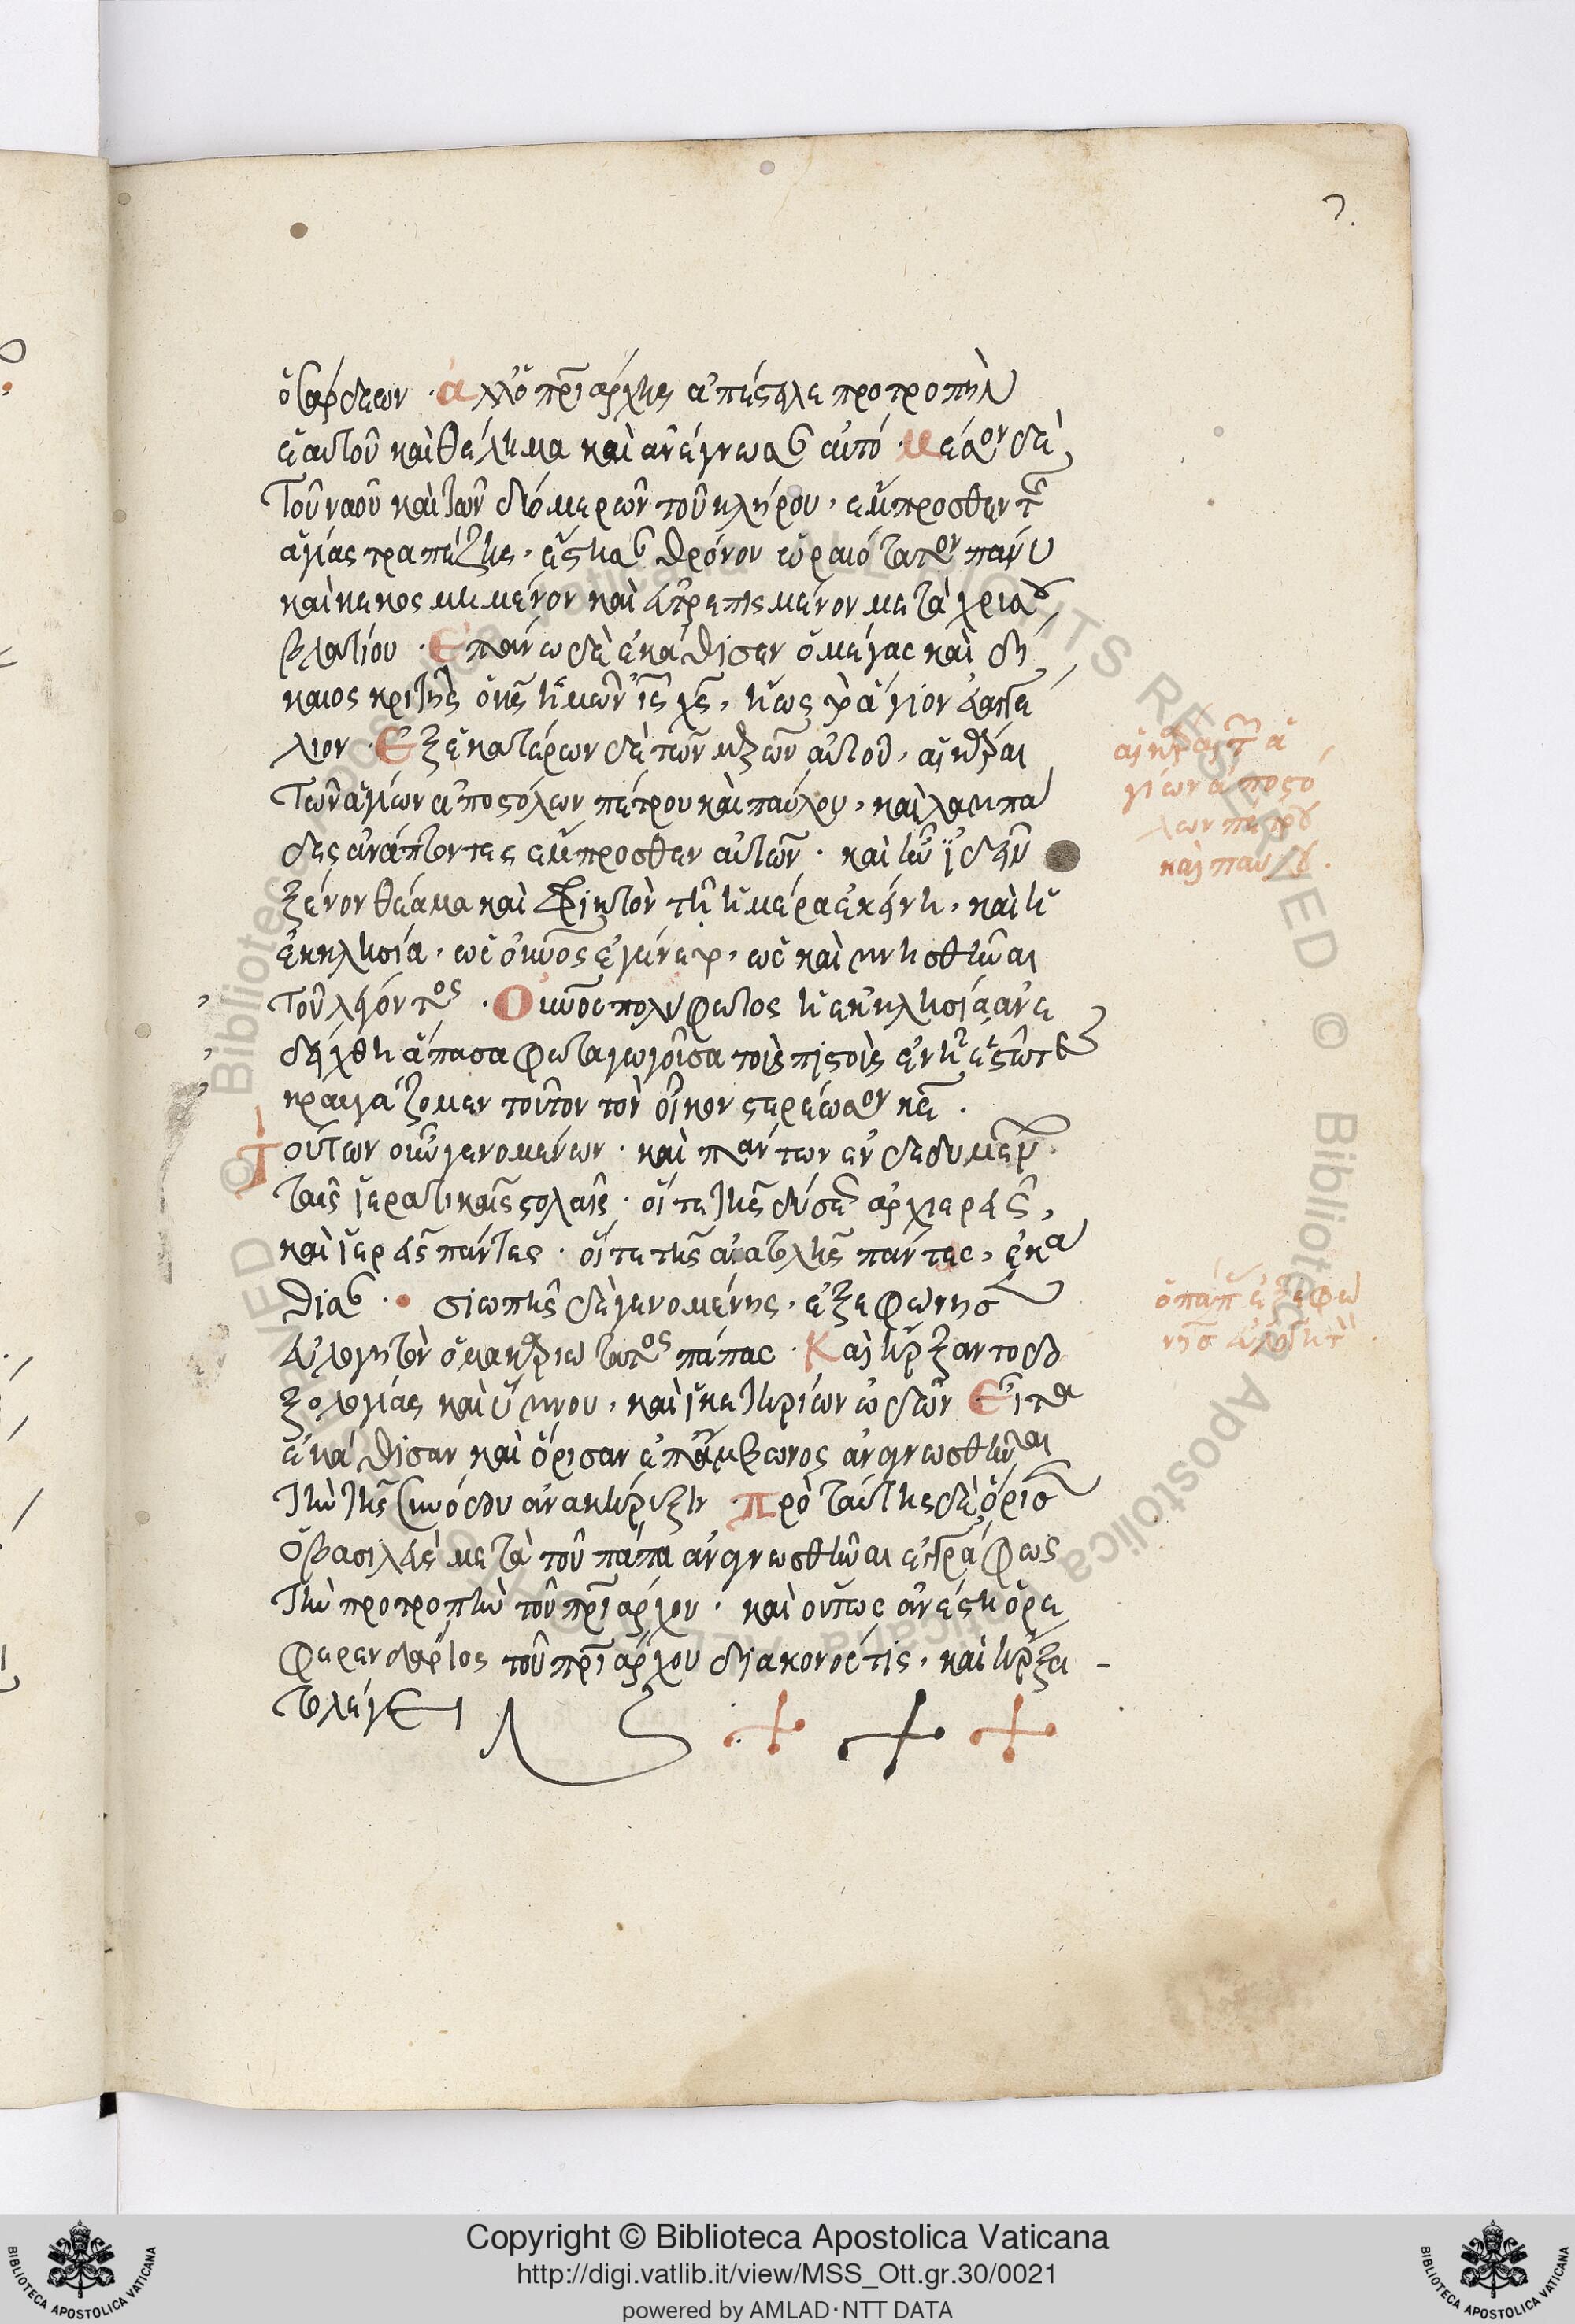 7.
ὁ σάρδεων · ἀλλ' ὁ πριάρχης ἀπέστειλε προτροπὴν
ἑαυτοῦ καὶ θέλημα καὶ ἀνέγνωσαν αὐτό · μέσον δὲ
τοῦ ναοῦ καὶ τῶν δύο μερῶν τοῦ κλήρου, ἔμπροσθεν τῆς
ἁγίας τραπέζης, ἔστησαν θρόνον ὡραιότατον πάνυ
καὶ κεκοσμημένον καὶ εὐτρεπισμένον μετὰ χρυσοῦ
βλατίου · ἐπάνω δὲ ἐκάθισεν ὁ μέγας καὶ δί
καιος κριτὴς ὁ κς ἡμῶν ις χς, ἤως τὸ ἅγιον εὐαγγέ
λιον · ἐξ ἑκατέρων δὲ τῶν μερῶν αὐτοῦ, αἱ κάραι
τῶν ἁγίων ἀποστόλων πέτρου καὶ παύλου, καὶ λαμπά
δες ἀνάπτοντες ἔμπροσθεν αὐτῶν · καὶ ἦν ἰδεῖν
ξένον θέαμα καὶ φρικτὸν τῇ ἡμέρᾳ ἐκείνῃ, καὶ ἡ
ἐκκλησία, ὡς οὐνος ἐγένετο, ὡς καὶ μνησθῆναι
τοῦ λέγοντος · Οὐνος πολύφωτος ἡ ἐκκλησία ἀνε
δείχθη ἅπασα φωταγωγοῦσα τοὺς πιστοὺς ἐν ᾗ ἑστῶτες
κραυγάζομεν τοῦτον τὸν οἶκον στερέωσον κε ·
Τούτων οὖν γενομένων · καὶ πάντων ἐνδεδυμένων
ταῖς ἱερατικαῖς στολαῖς · οἵ τε τῆς δύσεως ἀρχιερεῖς,
καὶ ἱερεῖς πάντες · οἵ τε τῆς ἀνατολῆς πάντες, ἐκά
θισαν · σιωπῆς δὲ γενομένης, ἐξεφώνησεν
εὐλογητὸν ὁ μακαριώτατος πάπας · Καὶ ἤρξαντο δο
ξολογίας καὶ ὕμνου, καὶ ἱκετηρίων ὠδῶν · Εἶτα
ἐκάθισαν καὶ ὅρισαν ἐπ' ἄμβωνος ἀναγνωσθῆναι
τὴν τῆς συνόδου ἀνακήρυξιν · πρὸ ταύτης δὲ ὅρισεν
ὁ βασιλεὺς μετὰ τοῦ πάπα ἀναγνωσθῆναι ἐγγράφως
τὴν προτροπὴν τοῦ πριάρχου · καὶ οὕτως ἀνέστη ὁ ῥε
φερενδάριος τοῦ πριάρχου διάκονός τις, καὶ ἤρξα
το λέγειν
αἱ κάραι τῶν ἁ
γίων ἀποστό
λων πέτρου
καὶ παύλου.
ὁ πάπας ἐξεφώ
νησεν εὐλογητὸν
Copyright © Biblioteca Apostolica Vaticana
http://digi.vatlib.it/view/MSS_Ott.gr.30/0021
powered by AMLAD·NTT DATA
BIBLIOTECA APOSTOLICA VATICANA
BIBLIOTECA APOSTOLICA VATICANA